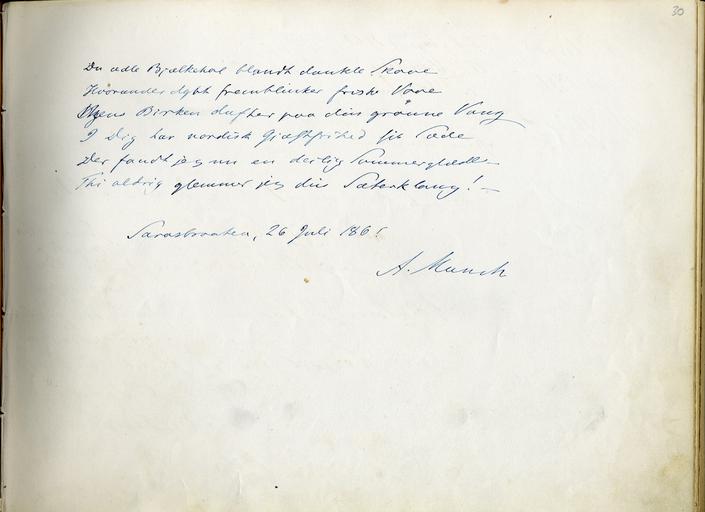 30
Du ædle Bjælkehal blandt dunkle Skove
Hvorunder dybt fremblinker friske Vove
Birken dufter paa din grønne Vang
I Dig har nordisk Giæstfrihed sit Sæde
Der fandt jeg nu en deilig Sommerglæde
Thi aldrig glemmer jeg din Sæterklang! —
Sarasbraaten, 26 Juli 186
A. Munch